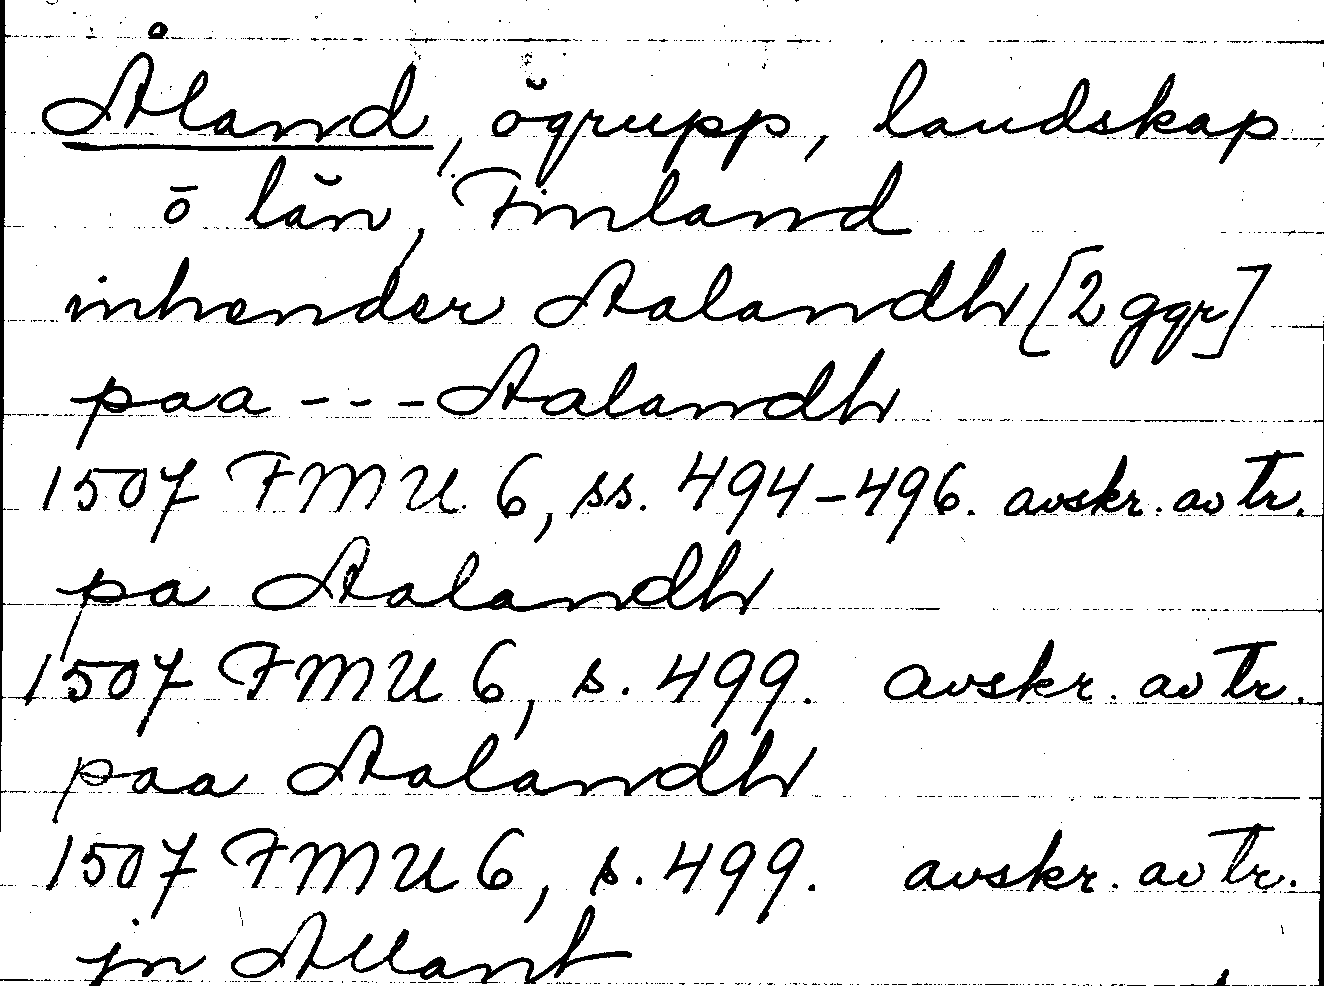 Åland, ögrupp, landskap
ō län, Finland
inhender Aalandh [2 ggr]
paa --- Aalandh
1507 FMU 6, ss. 494-496. avskr. av tr.
pa Aalandh
1507 FMU 6, s. 499. avskr. av tr.
paa Aalandh
1507 FMU 6, s. 499. avskr. av tr.
jn Allant